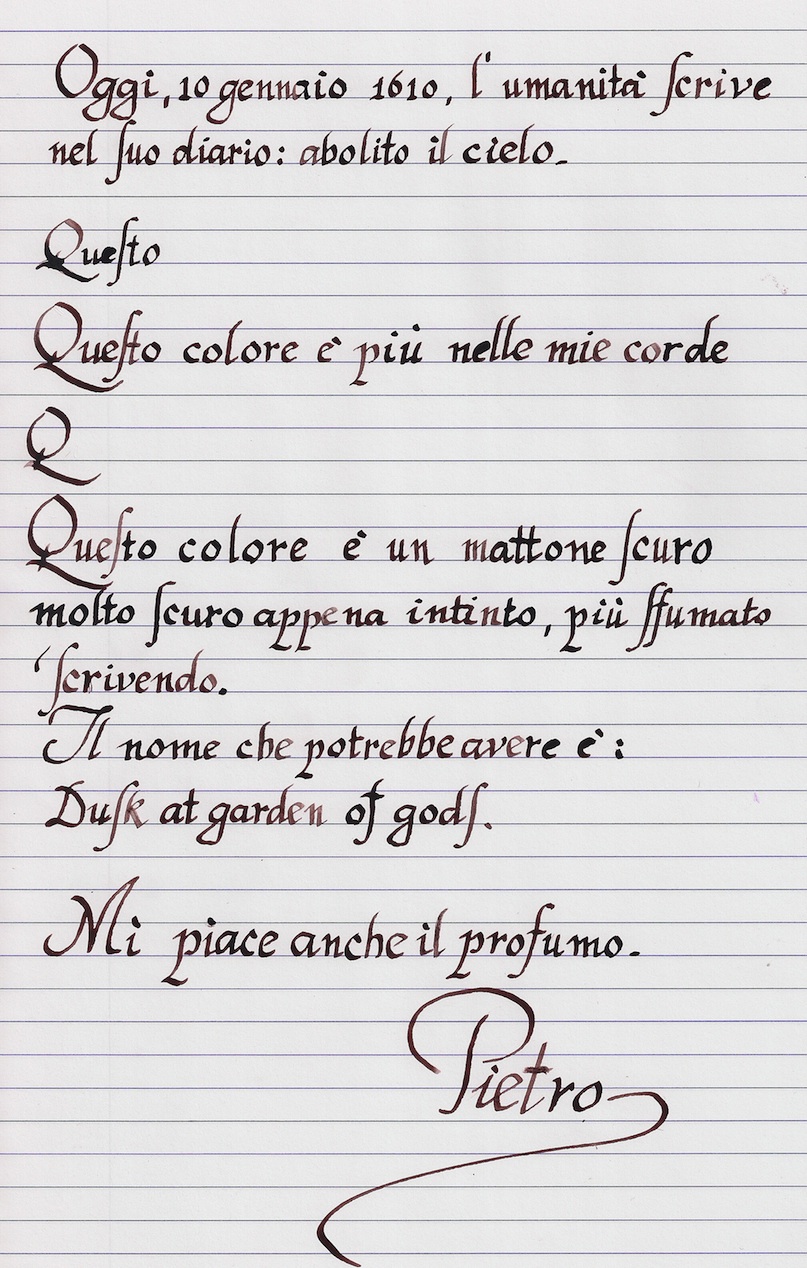 Oggi, 10 gennaio 1610, l'umanità ſcrive
nel ſuo diario: abolito il cielo.
Queſto
Queſto colore è più nelle mie corde
Q
Queſto colore è un mattone ſcuro
molto ſcuro appena intinto, più ſfumato
ſcrivendo.
Il nome che potrebbe avere è:
Duſk at garden of godſ.
Mi piace anche il profumo.
Pietro